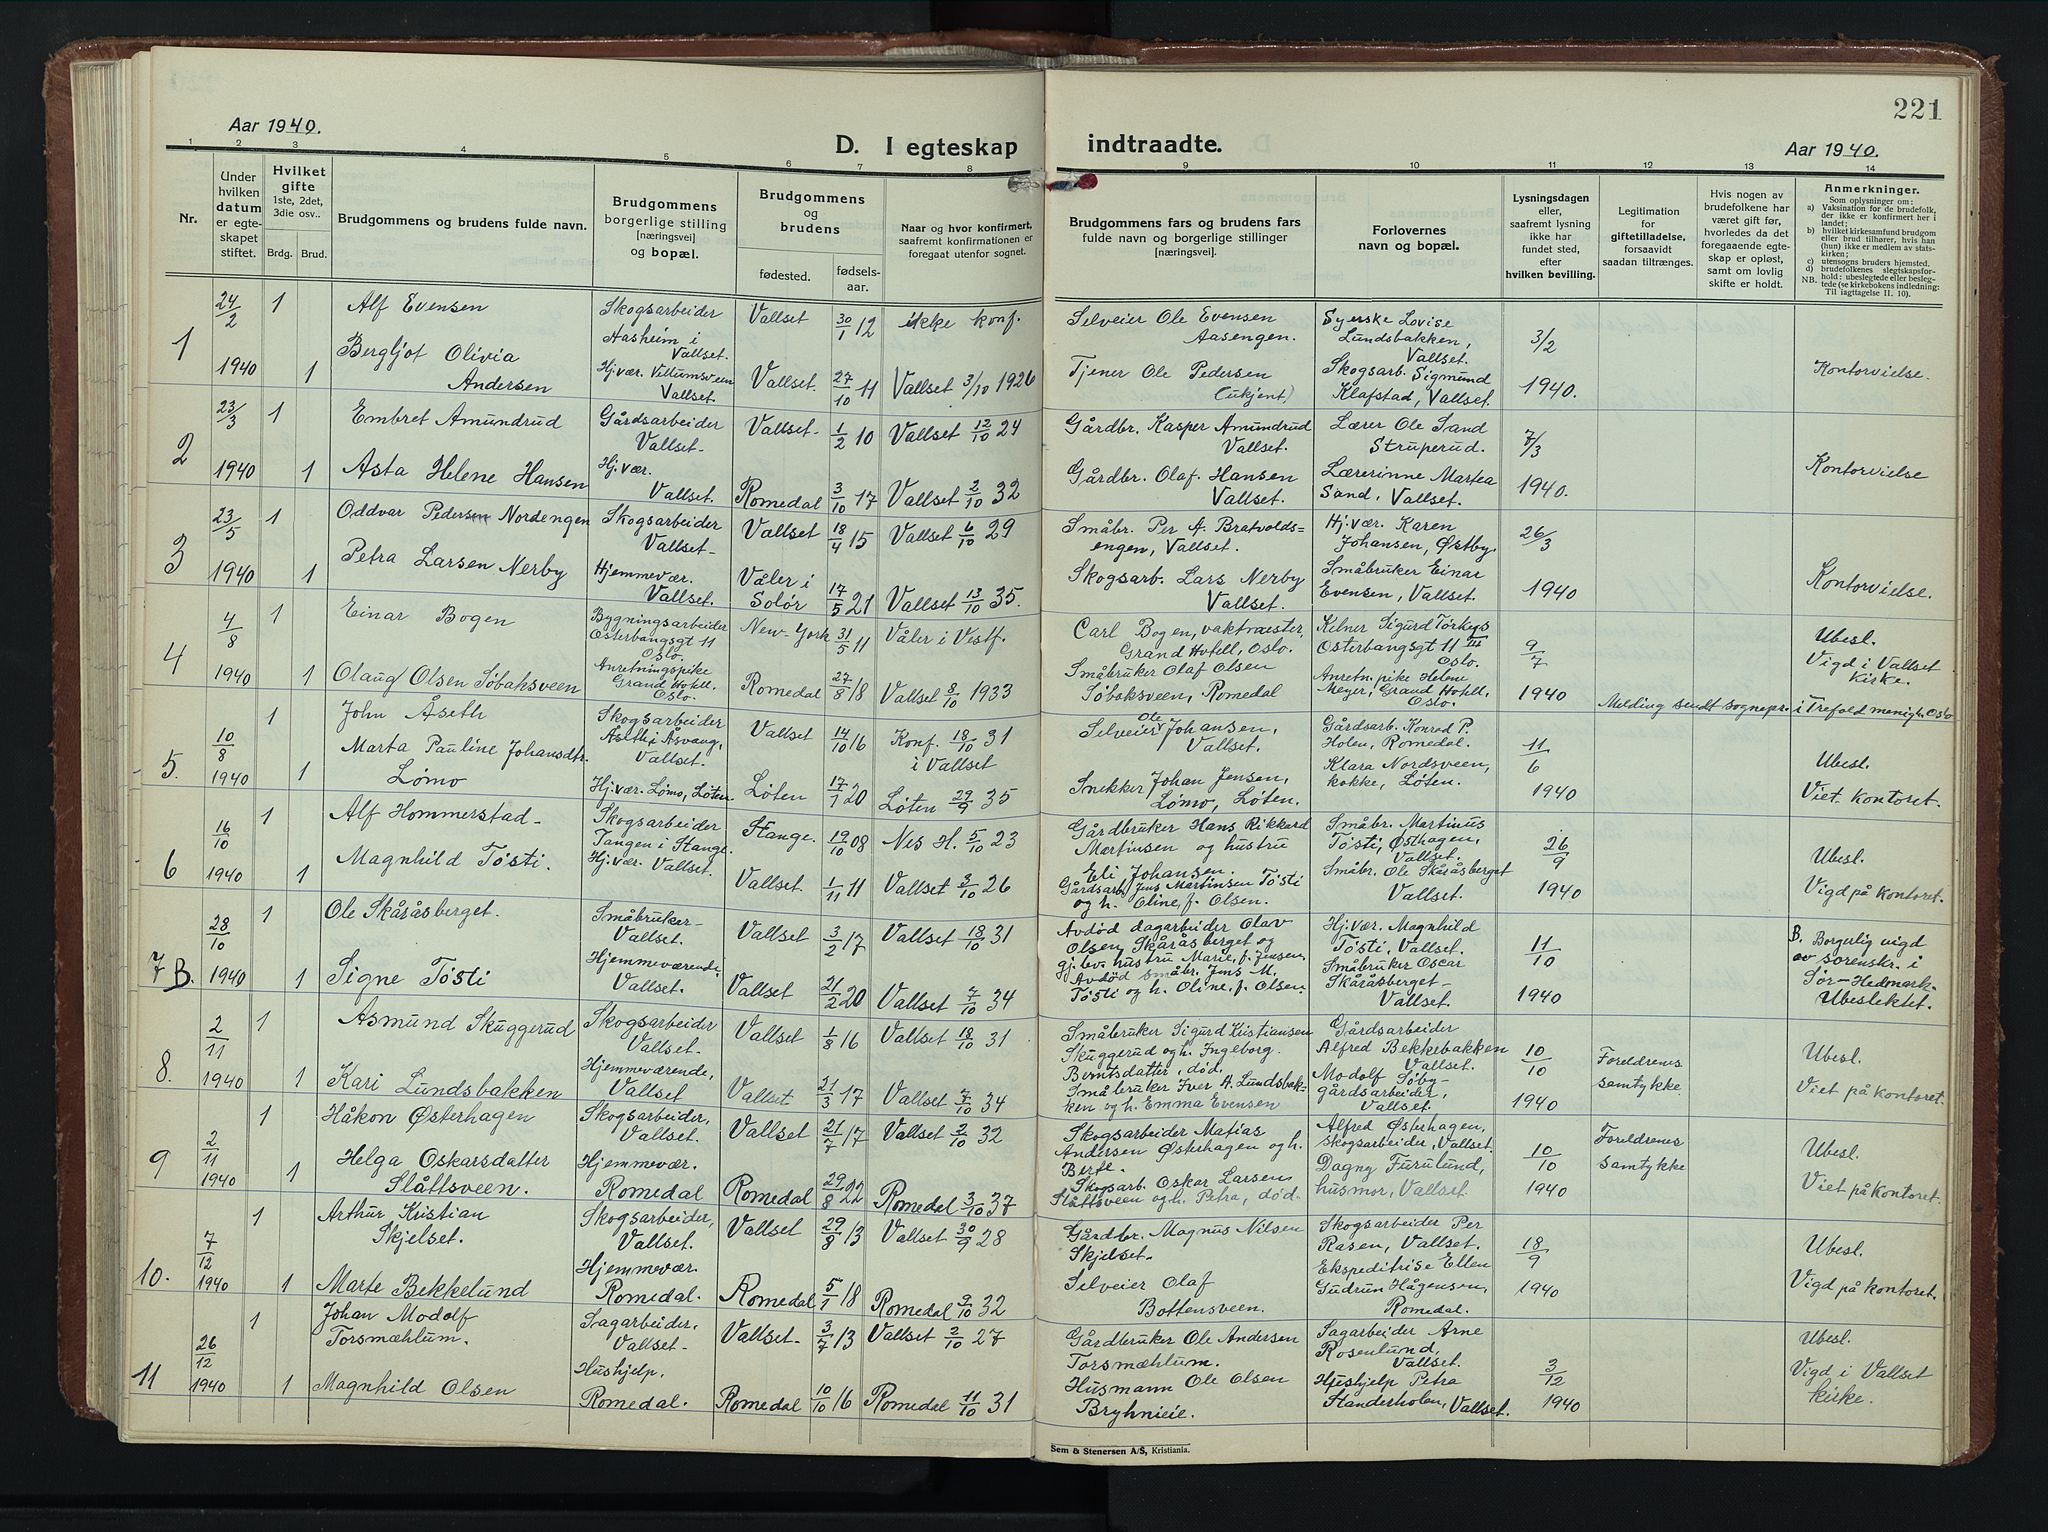 221
Aar 1940.
D. I egteskap indtraadte.
Aar 1940.
1 2 3 4 5 6 7 8 9 10 11 12 13 14
Nr.
Under hvilken datum er egteskapet stiftet.
Hvilket gifte 1ste, 2det, 3die osv..
Brdg. Brud.
Brudgommens og brudens fulde navn.
Brudgommens borgerlige stilling [næringsvei] og bopæl.
Brudgommens og brudens
fødested. fødselsaar.
Naar og hvor konfirmert, saafremt konfirmationen er foregaat utenfor sognet.
Brudgommens fars og brudens fars fulde navn og borgerlige stillinger [næringsvei].
Forlovernes navn og bopæl.
Lysningsdagen eller, saafremt lysning ikke har fundet sted, efter hvilken bevilling.
Legitimation for giftetilladelse, forsaavidt saadan tiltrænges.
Hvis nogen av brudefolkene har været gift før, hvorledes da det foregaaende egteskap er opløst, samt om lovlig skifte er holdt.
Anmerkninger.
Som oplysninger om:
a) Vaksination for de brudefolk, der ikke er konfirmert her i landet;
b) hvilket kirkesamfund brudgom eller brud tilhører, hvis han (hun) ikke er medlem av statskirken;
c) utensogns bruders hjemsted.
d) brudefolkenes slegtskapsforhold: ubeslegtede eller beslegtede (se kirkebokens indledning: Til iagttagelse II. 10).
NB.
1 24/2 1940 1 Alf Evensen Skogsarbeider Aasheim i Vallset. Vallset 30/1 12 ikke konf. Selveier Ole Evensen Aasengen. Syerske Lovise Lundsbakken, Vallset. 3/2 1940.
1 Bergljot Olivia Andersen Hj.vær. Villumsveen Vallset. Vallset. 27/10 11 Vallset 3/10 1926 Tjener Ole Pedersen (ukjent) Skogsarb. Sigmund Klafstad, Vallset. Kontorvielse.
2 23/3 1940 1 Embret Amundrud Gårdsarbeider Vallset. Vallset. 1/2 10 Vallset 12/10 24 Gårdbr. Kasper Amundrud Vallset. Lærer Ole Sand Struperud. 7/3 1940.
1 Asta Helene Hansen Hj.vær. Vallset. Romedal 3/10 17 Vallset 2/10 32 Gårdbr. Olaf Hansen Vallset. Lærerinne Martea Sand, Vallset. Kontorvielse
3 23/5 1940 1 Oddvar Pedersen Nordengen Skogsarbeider Vallset. Vallset 18/4 15 Vallset 6/10 29 Småbr. Per A. Bratvoldsengen, Vallset. Hj.vær. Karen Johansen, Østby. 26/3 1940
1 Petra Larsen Nerby Hjemmevær. Vallset. Våler i Solør 17/5 21 Vallset 13/10 35. Skogsarb. Lars Nerby Vallset. Småbruker Einar Evensen, Vallset. Kontorvielse.
4 4/8 1940 1 Einar Bogen Bygningsarbeider Osterhausgt 11 Oslo. New-York 31/5 11 Våler i Vestf. Carl Bogen, vaktmester, Grand Hotell, Oslo. Kelner Sigurd Torkeys Osterbangsgt 11 III Oslo. 9/7 1940
1 Olaug Olsen Søbaksveen Anretningspike Grand Hotell, Oslo. Romedal 27/8 18 Vallset 8/10 1933 Småbruker Olaf Olsen Søbaksveen, Romedal Anretn.pike Helene Meyer, Grand Hotell, Oslo. Ubesl. Vigd i Vallset kirke.
Melding sendt sognepr. i Trefold. menigh. Oslo
5. 10/8 1940 1 John Åseth Skogsarbeider Åseth i Åsvang, Vallset. Vallset 14/10 16 Konf. 18/10 31 i Vallset Selveier Ole Johansen, Vallset. Gårdsarb. Konrad P. Holen, Romedal. 11/6 1940
1 Marta Pauline Johansdtr. Lømo Hj.vær. Lømo, Løten. Løten 17/1 20 Løten 29/9 35 Snekker Johan Jensen, Lømo, Løten. Klara Nordsveen, kokke, Løten. Ubesl. Viet. kontoret.
6 16/10 1940 1 Alf Hommerstad Skogsarbeider Tangen i Stange. Stange. 19/10 08 Nes H. 5/10 23 Gårdbruker Hans Rikkard Martinsen og hustru Eli Johansen. Småbr. Martinus Tøsti, Østhagen, Vallset. 26/9 1940
1 Magnhild Tøsti. Hj.vær. Vallset. Vallset. 1/11 11 Vallset 3/10 26 Gårdsarb. Jens Martinsen Tøsti og h. Oline, f. Olsen. Småbr. Ole Skåråsberget Vallset. Ubesl. Vigd på kontoret.
7 B. 28/10 1940 1 Ole Skåråsberget. Småbruker Vallset. Vallset 3/2 17 Vallset 18/10 31 Avdød dagarbeider Olav Olsen, Skåråsberget og gj.lev. hustru Marie, f. Jensen. Hj.vær. Magnhild Tøsti, Vallset. 11/10 1940
1 Signe Tøsti Hjemmeværende, Vallset. Vallset 21/2 20 Vallset 7/10 34 Avdød småbr. Jens M. Tøsti og h. Oline, f. Olsen. Småbruker Oscar Skåråsberget Vallset. B. Borgerlig vigd av sorenskr. i Sør-Hedmark. Ubeslektet.
8. 2/11 1940 1 Asmund Skuggerud Skogsarbeider Vallset. Vallset 1/8 16 Vallset 18/10 31 Småbruker Sigurd Kristiansen Skuggerud og h. Ingeborg. Berntsdatter, død. Gårdsarbeider Alfred Bekkebakken Vallset. 10/10 1940
1 Kari Lundsbakken Hjemmeværende, Vallset Vallset 21/3 17 Vallset 7/10 34 Småbruker Iver A. Lundsbakken og h. Emma Evensen Modolf Søby gårdsarbeider, Vallset. Foreldrenes samtykke Ubesl. Viet på kontoret.
9 2/11 1940 1 Håkon Østerhagen Skogsarbeider, Vallset. Vallset 21/7 17 Vallset 2/10 32 Skogsarbeider Matias Andersen Østerhagen og h. Berte. Alfred Østerhagen, skogsarbeider, Vallset. 10/10 1940
1 Helga Oskarsdatter Slåttsveen. Hjemmevær. Romedal Romedal 29/8 22 Romedal 3/10 37 Skogsarb. Oskar Larsen Slåttsveen og h. Petra, død. Dagny Furulund, husmor, Vallset. Foreldrenes samtykke Ubesl. Viet på kontoret.
10. 7/12 1940 1 Arthur Kristian Skjelset. Skogsarbeider, Vallset. Vallset 29/8 13 Vallset 30/9 28 Gårdbr. Magnus Nilsen Skjelset. Skogsarbeider Per Rasen, Vallset. 18/9 1940
1 Marte Bekkelund Hjemmevær. Romedal. Romedal 5/1 18 Romedal 9/10 32 Selveier Olaf Bottensveen. Ekspeditrise Ellen Gudrun Hågensen, Romedal. Ubesl. Vigd på kontoret.
11 26/12 1940 1 Johan Modolf Torsmæhlum. Sagarbeider, Vallset. Vallset 3/7 13 Vallset 2/10 27 Gårdbruker Ole Andersen Torsmæhlum. Sagarbeider Arne Rosenlund, Vallset. 3/12 1940
1 Magnhild Olsen Hushjelp, Romedal. Romedal 10/10 16 Romedal 11/10 31 Husmann Ole Olsen Bryhnieie. Hushjelp Petra Standerholen, Vallset. Ubesl. Vigd i Vallset kirke.
Sem & Stenersen A/S, Kristiania.